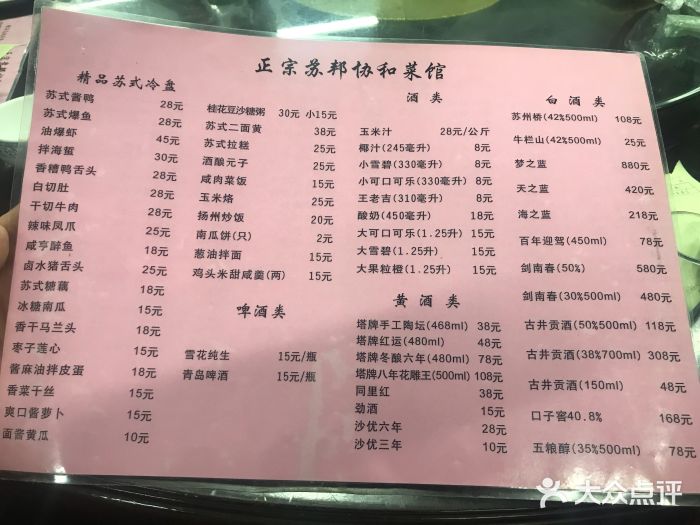 正宗苏邦协和菜馆
精品苏式冷盘
苏式酱鸭 28元
苏式爆鱼 28元
油爆虾 45元
拌海蜇 30元
香糟鸭舌头 28元
白切肚 28元
干切牛肉 28元
辣味凤爪 25元
咸亨醉鱼 18元
卤水猪舌头 25元
苏式糖藕 18元
冰糖南瓜 15元
香干马兰头 18元
枣子莲心 15元
酱麻油拌皮蛋 18元
香菜干丝 15元
爽口酱萝卜 15元
面酱黄瓜 10元
桂花豆沙糖粥 30元 小15元
苏式二面黄 38元
苏式拉糕 25元
酒酿元子 25元
咸肉菜饭 15元
玉米烙 25元
扬州炒饭 20元
南瓜饼(只) 2元
葱油拌面 15元
鸡头米甜咸羹(两) 15元
啤酒类
雪花纯生 15元/瓶
青岛啤酒 15元/瓶
酒类
玉米汁 28元/公斤
椰汁(245毫升) 8元
小雪碧(330毫升) 8元
小可口可乐(330毫升) 8元
王老吉(310毫升) 8元
酸奶(450毫升) 18元
大可口可乐(1.25升) 15元
大雪碧(1.25升) 15元
大果粒橙(1.25升) 15元
黄酒类
塔牌手工陶坛(468ml) 38元
塔牌红运(480ml) 48元
塔牌冬酿六年(480ml) 78元
塔牌八年花雕王(500ml) 108元
同里红 38元
劲酒 15元
沙优六年 28元
沙优三年 10元
白酒类
苏州桥(42%500ml) 108元
牛栏山(42%500ml) 25元
梦之蓝 880元
天之蓝 420元
海之蓝 218元
百年迎驾(450ml) 78元
剑南春(50%) 580元
剑南春(30%500ml) 480元
古井贡酒(50%500ml) 118元
古井贡酒(38%700ml) 308元
古井贡酒(150ml) 48元
口子窖40.8% 168元
五粮醇(35%500ml) 78元
大众点评